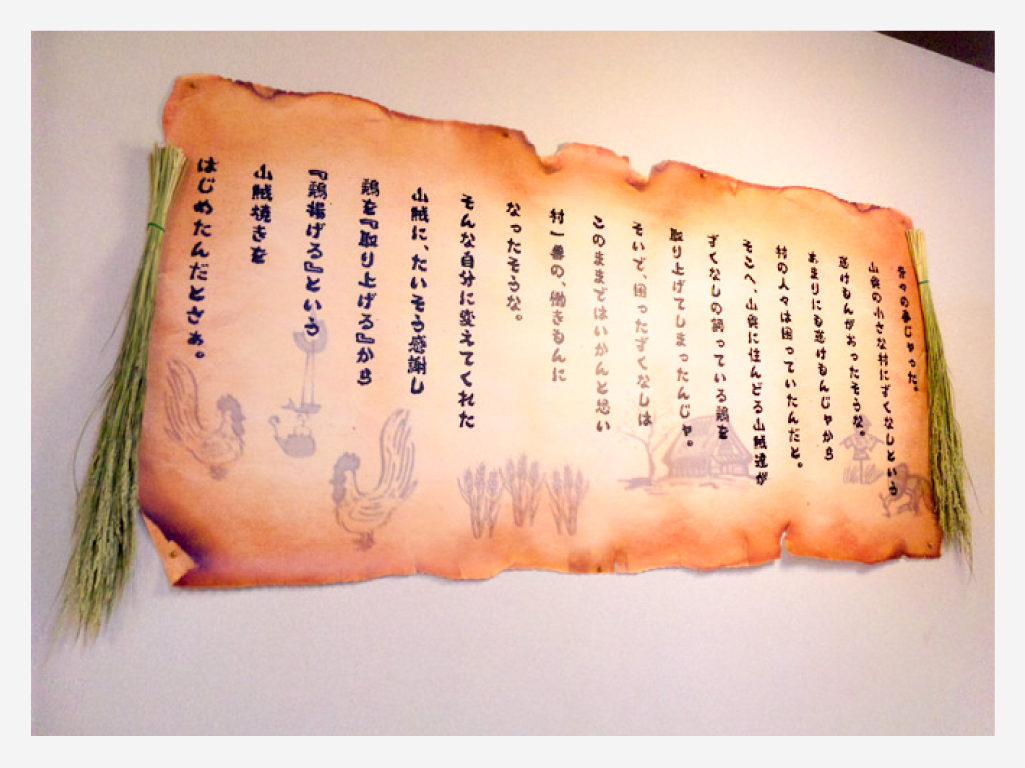 昔々の事じゃった。
山奥の小さな村にずくなしという
怠けもんがおったそうな。
あまりにも怠けもんじゃから
村の人々は困っていたんだと。
そこへ、山奥に住んどる山賊達が
ずくなしの飼っている鶏を
取り上げてしまったんじゃ。
そいで、困ったずくなしは
このままではいかんと思い
村一番の、働きもんに
なったそうな。
そんな自分に変えてくれた
山賊に、たいそう感謝し
鶏を『取り上げる』から
『鶏揚げる』という
山賊焼きを
はじめたんだとさぁ。